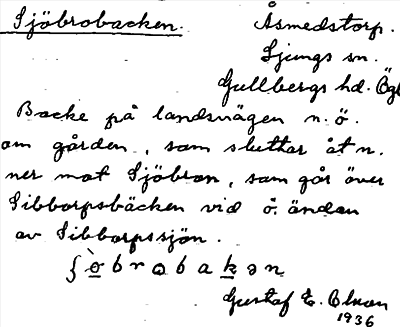 Sjöbrobacken.
Åsmedstorp.
Ljungs sn.
Gullbergs hd. Ög
Backe på landsvägen n.ö.
om gården, som sluttar åt n.
ner mot Sjöbron, som går över
Sibborpsbäcken vid ö. änden
av Sibborpssjön.
ʃ ò b r o b a k ə n
Gustaf E. Olson
1936